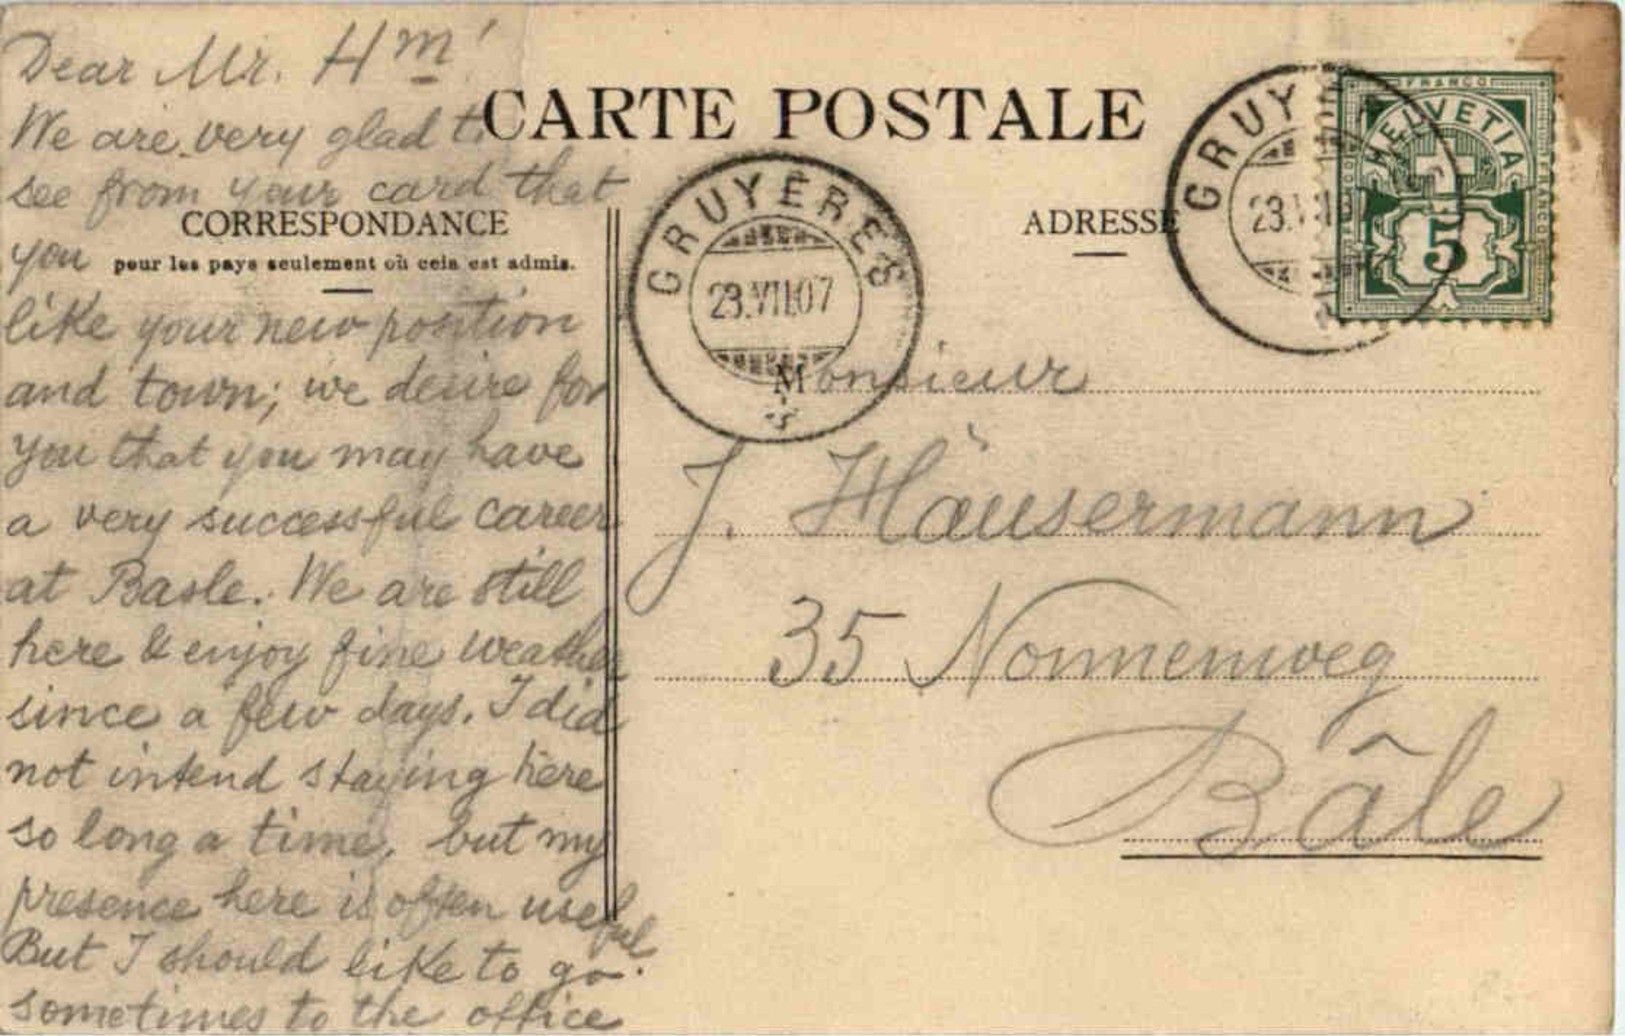 Dear Mr. Hm!
We are very glad to
see from your card that
you
like your new position
and town; we desire for
you that you may have
a very successful career
at Basle. We are still
here & enjoy fine weather
since a few days. I did
not intend staying here
so long a time, but my
presence here is often useful.
But I should like to go
sometimes to the office
CARTE POSTALE
CORRESPONDANCE
pour les pays seulement où cela est admis.
ADRESSE
GRUYÈRES
23.VII.07
GRUY
23.V
FRANCO
HELVETIA
FRANCO
5
Monsieur
J. Häusermann
35 Nonnenweg
Bâle